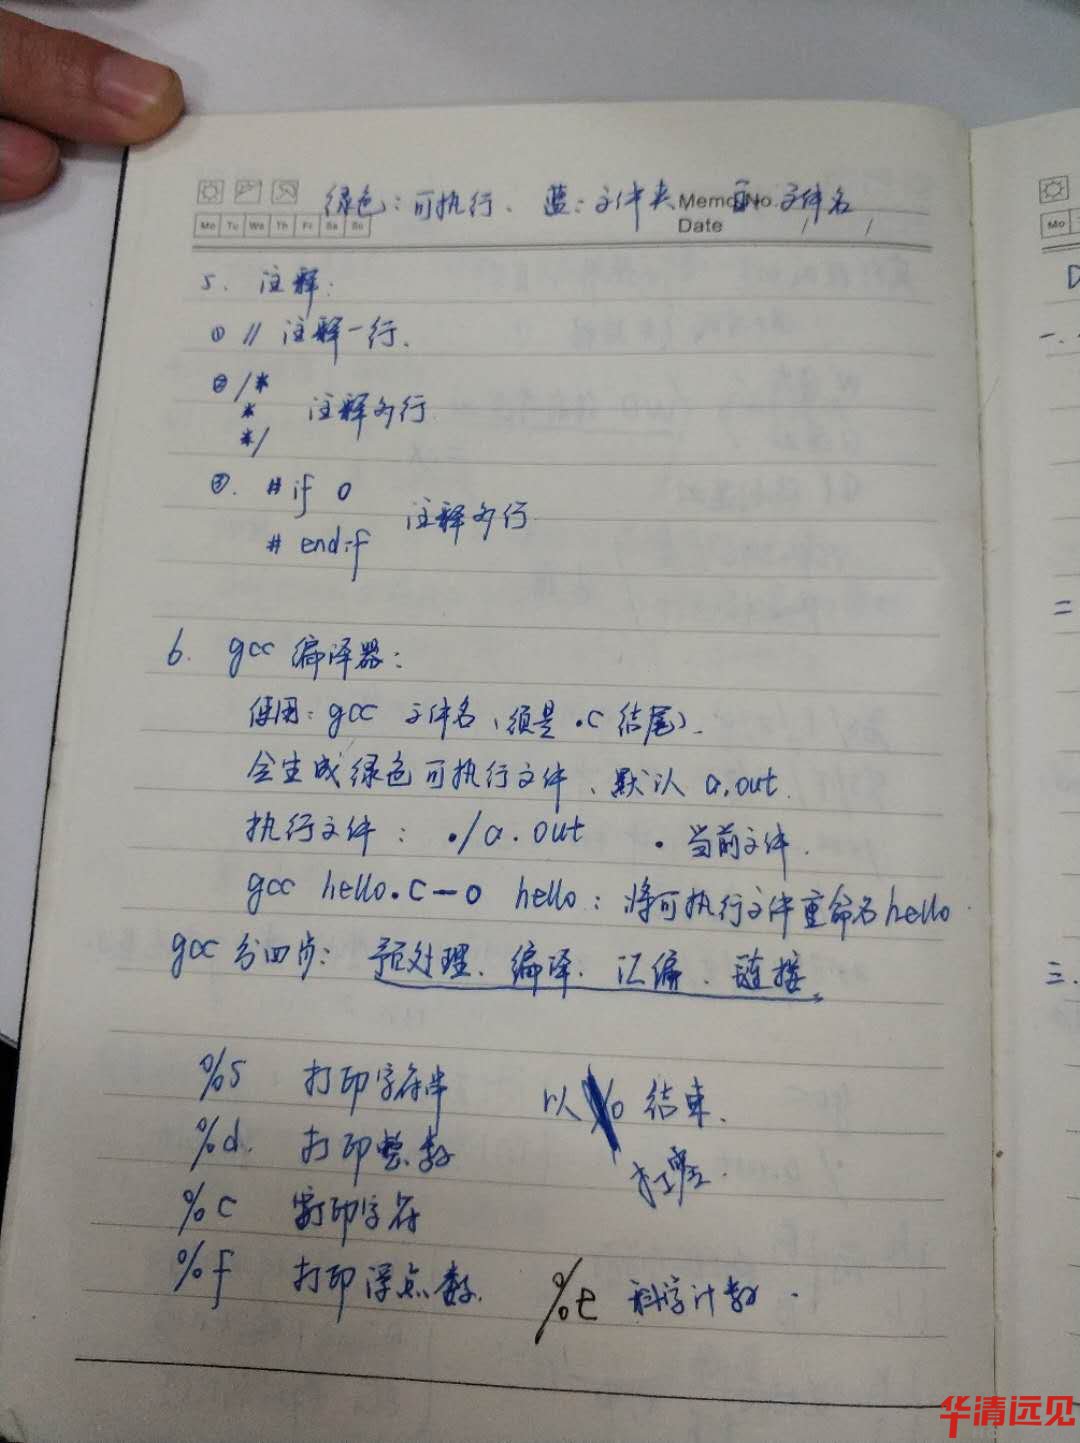 绿色:可执行、 蓝:文件夹 Memo No. 白: 文件名
Mo Tu We Th Fr Sa Su
Date / /
5. 注释:
① // 注释一行.
② /*
* 注释多行.
*/
③. #if 0
注释多行
# endif
6. gcc 编译器:
使用: gcc 文件名 (须是.c 结尾).
会生成绿色可执行文件、默认 a.out.
执行文件: ./a.out . 当前文件.
gcc hello.c -o hello: 将可执行文件重命名hello.
gcc 分四步: 预处理、编译、汇编、链接
%s 打印字符串 以\0 结束.
%d. 打印整数
%c 打印字符
%f 打印浮点数. %e 科学计数.
Mo
一.
二
三.
华清远见